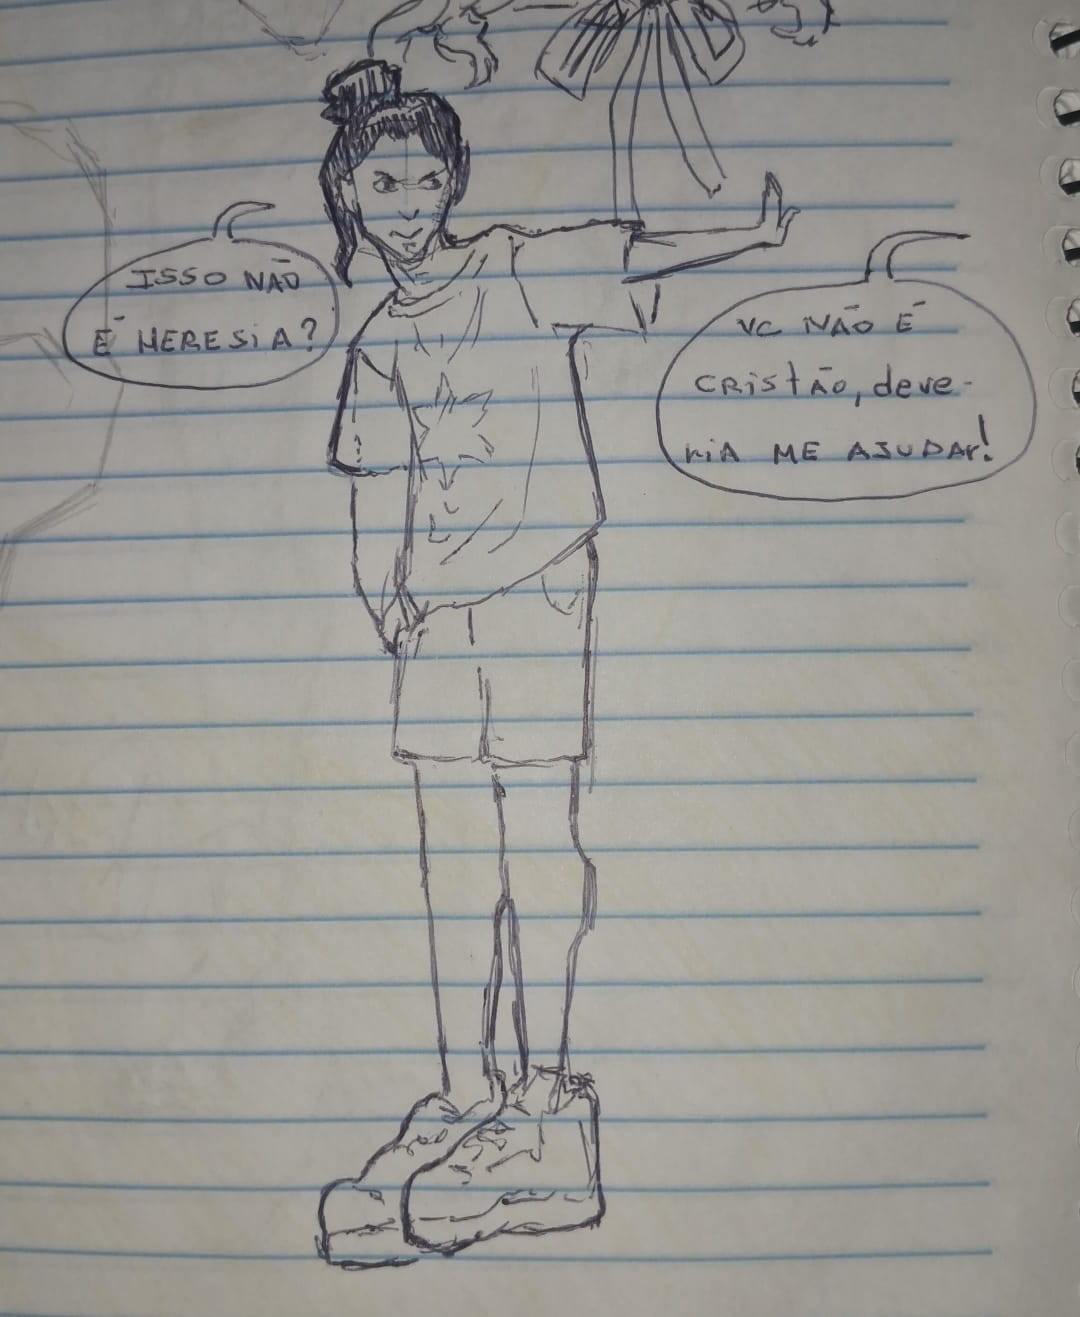 ISSO NÃO
É HERESIA?
VC NÃO É
CRISTÃO, deve-
RIA ME AJUDAr!